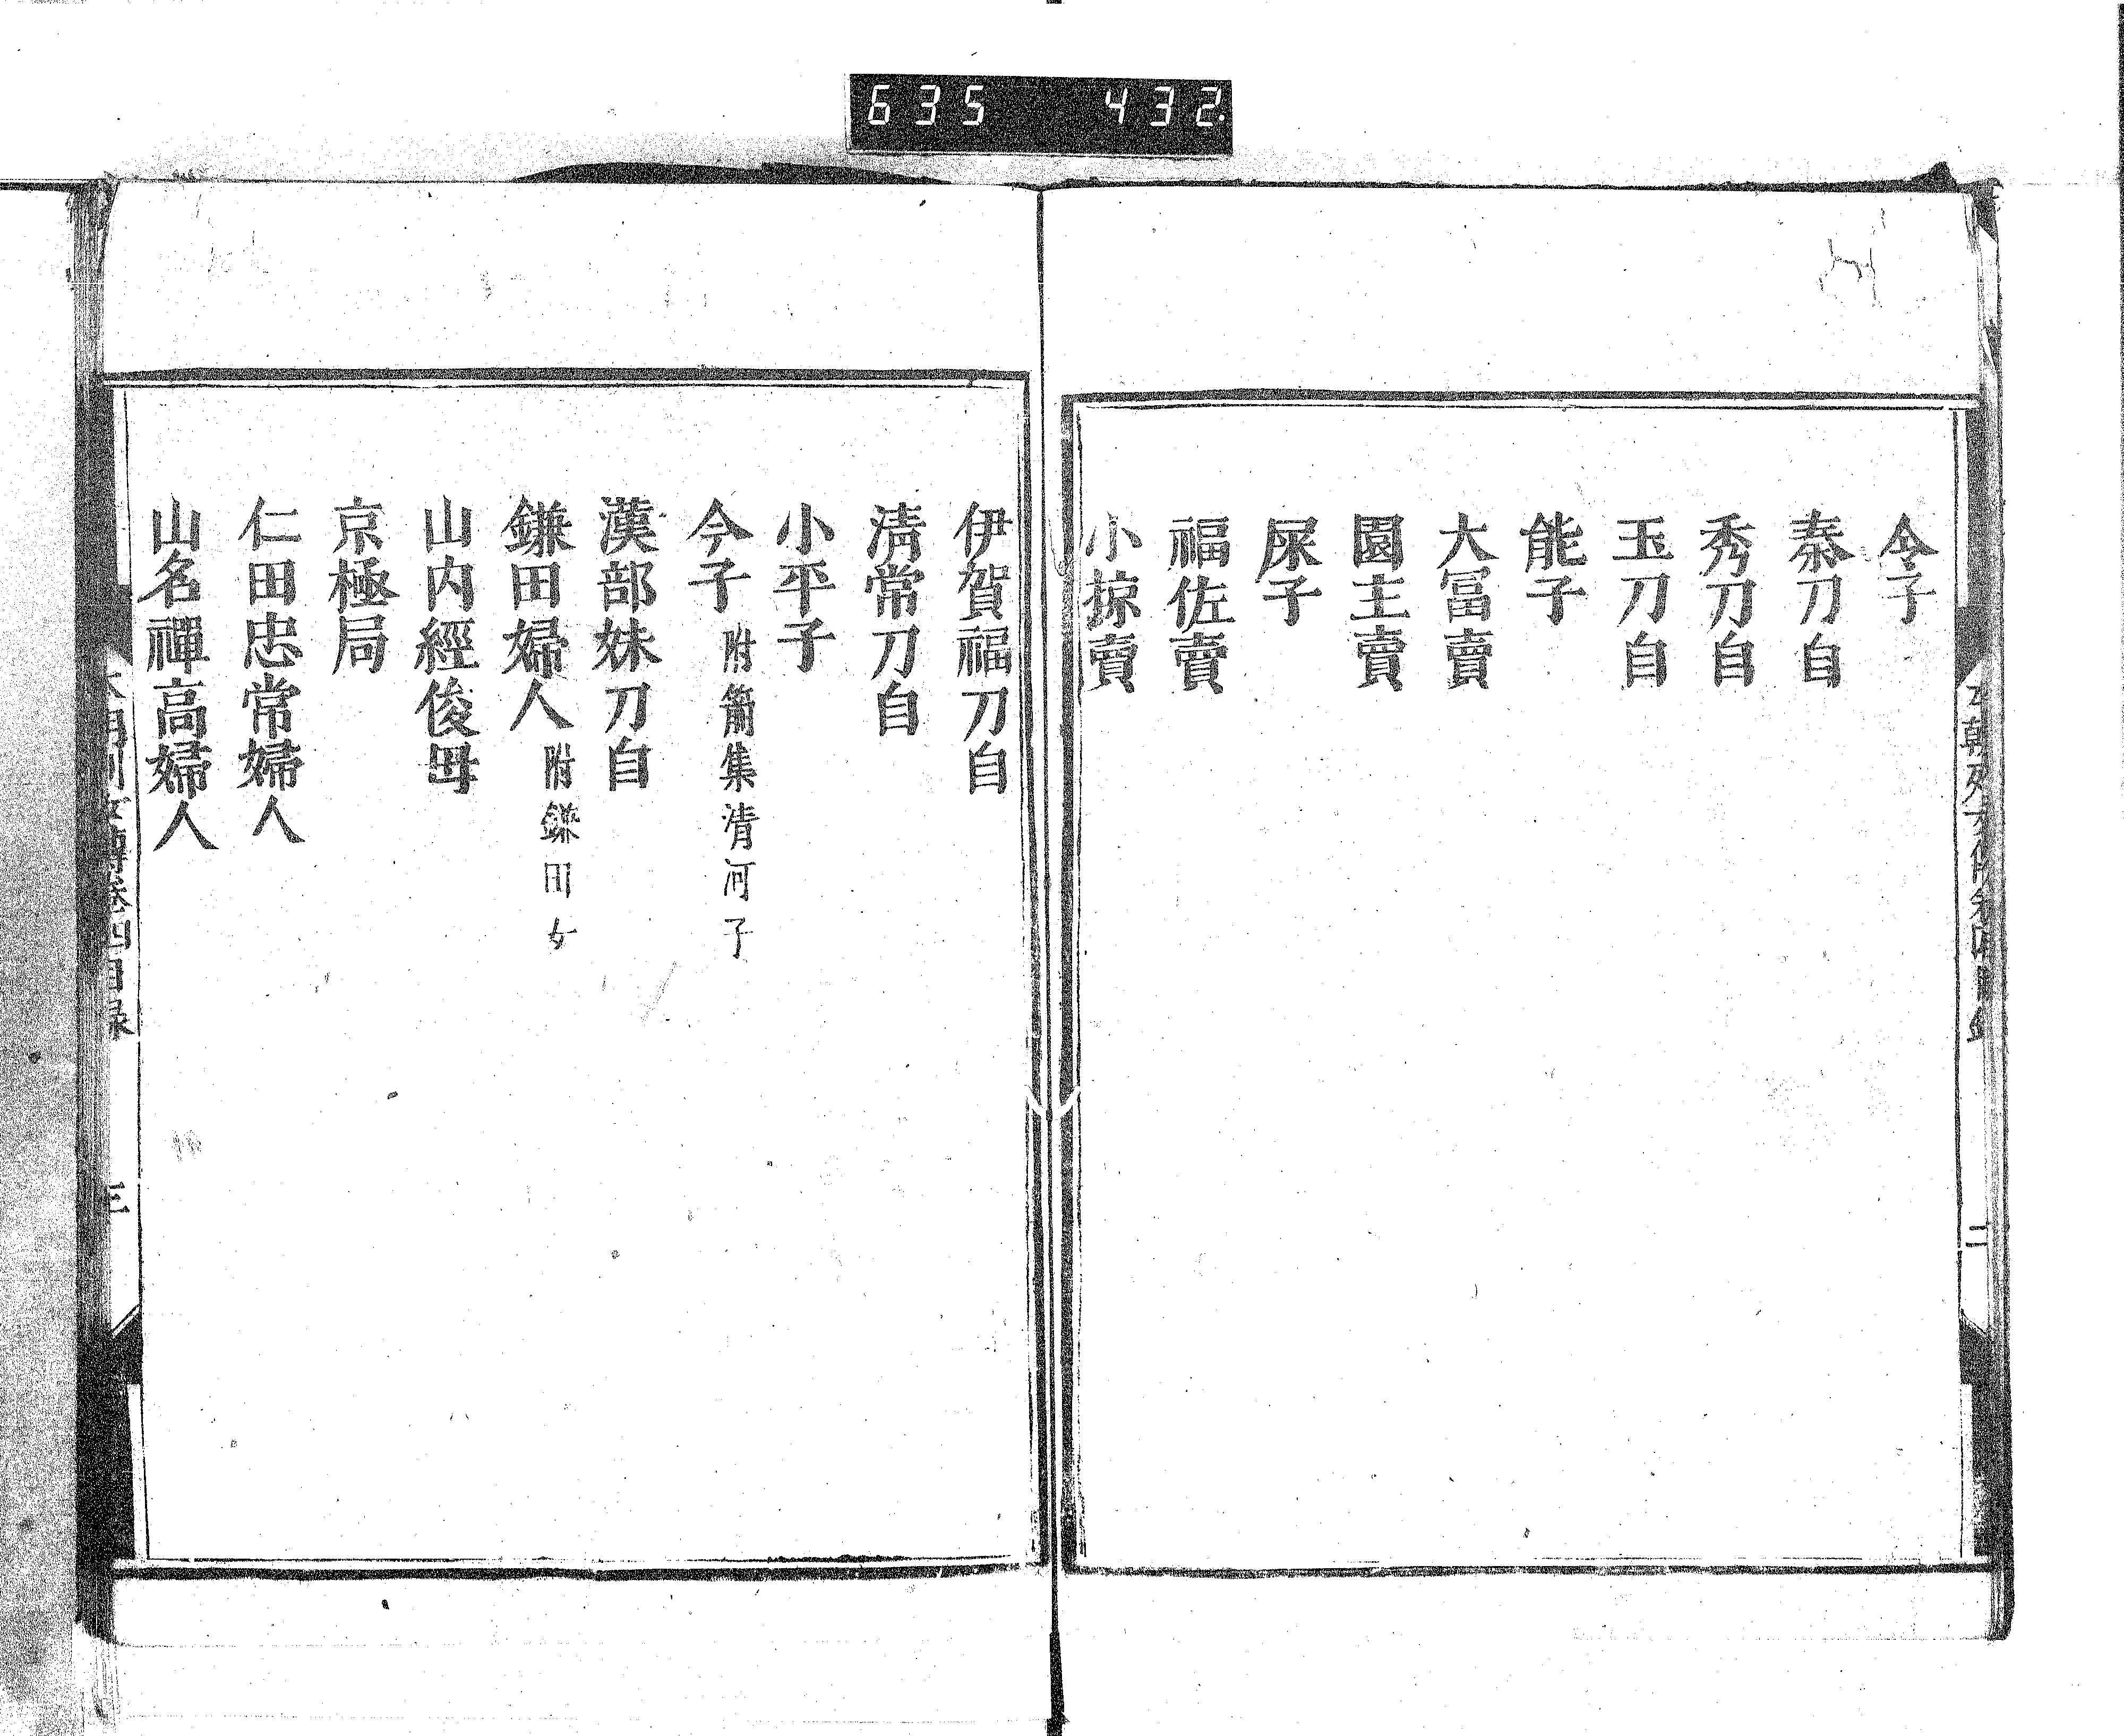 635 432
令子
秦刀自
秀刀自
玉刀自
能子
大冨賣
園主賣
屎子
福佐賣
小掠賣
二
伊賀福刀自
淸常刀自
小平子
今子 附箭集清河子
漢部妹刀自
鎌田婦人 附鎌田女
山内經俊母
京極局
仁田忠常婦人
山名禪高婦人
列女傳卷四目録
三